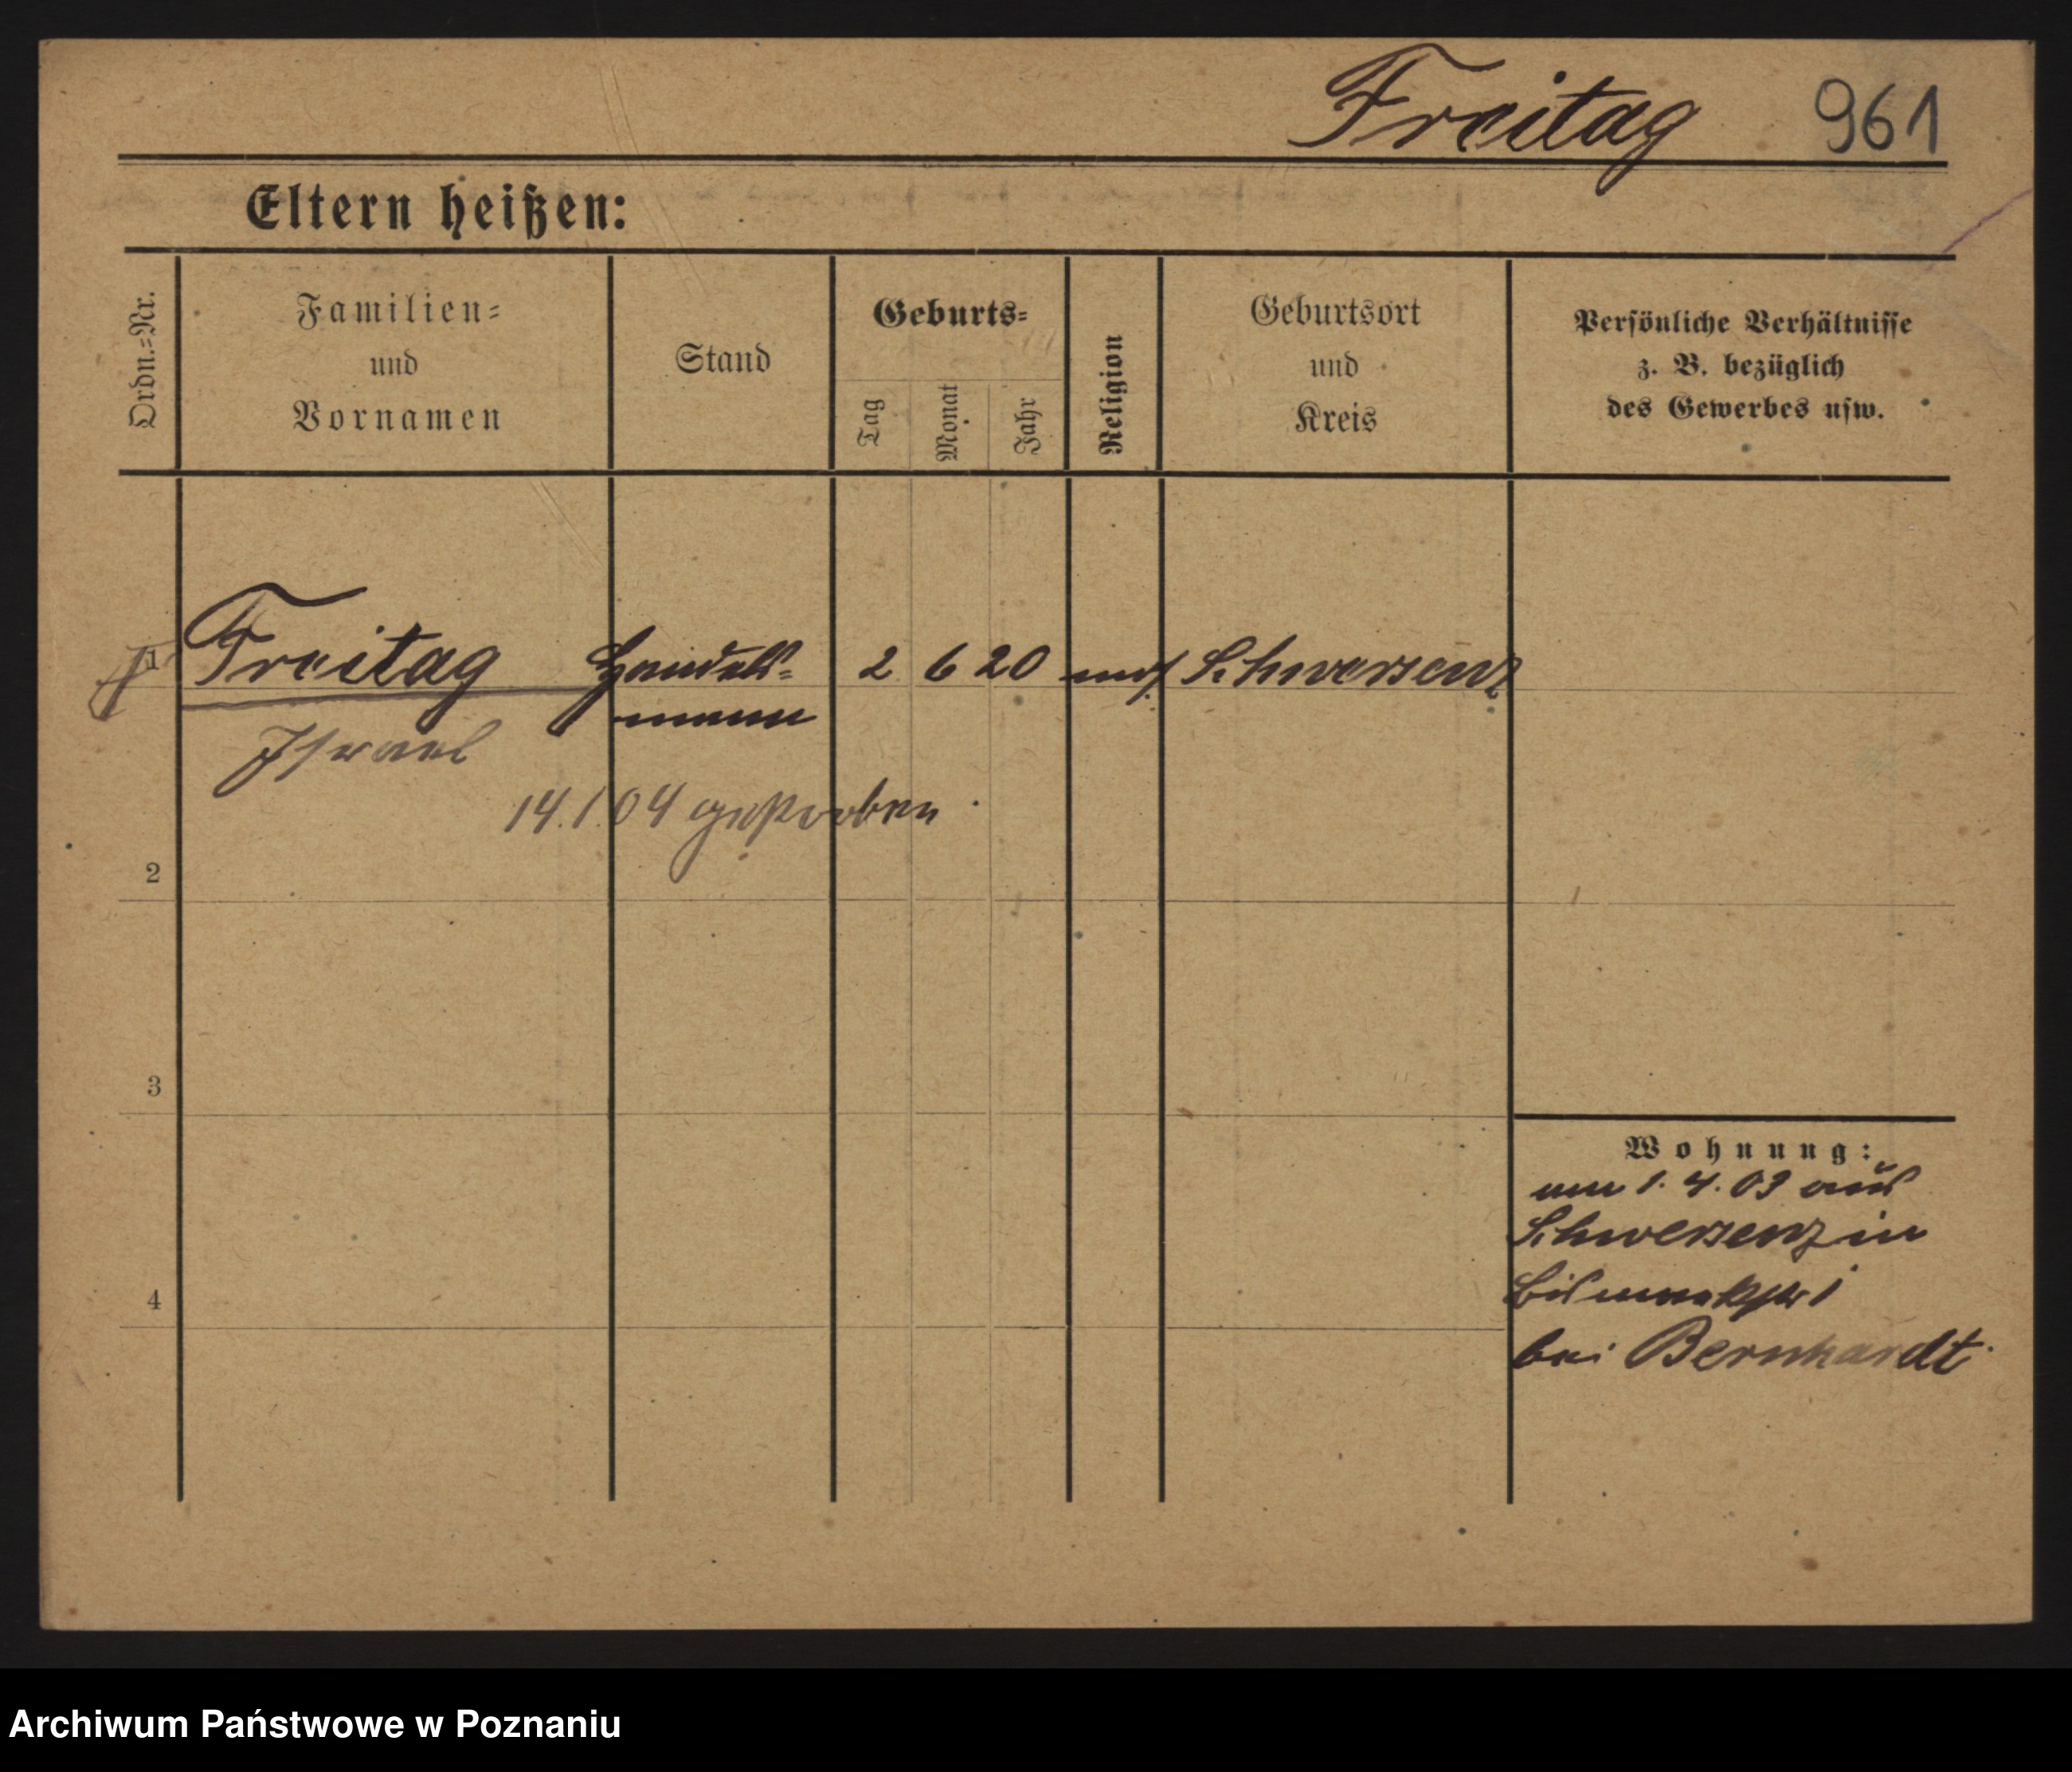 Freitag 961
Eltern heißen:
Ordn.-Nr.
Familien-
und
Vornamen
Stand
Geburts-
Tag
Monat
Jahr
Religion
Geburtsort
und
Kreis
Persönliche Verhältnisse
z. B. bezüglich
des Gewerbes usw.
1 Freitag Handels- 2 6 20 mos. Schwersenz
mann
Israel
14.1.04 gestorben
2
3
4
Wohnung:
am 1.4.03 aus
Schwersenz in
Bismarckstr 1
bei Bernhardt
Archiwum Państwowe w Poznaniu